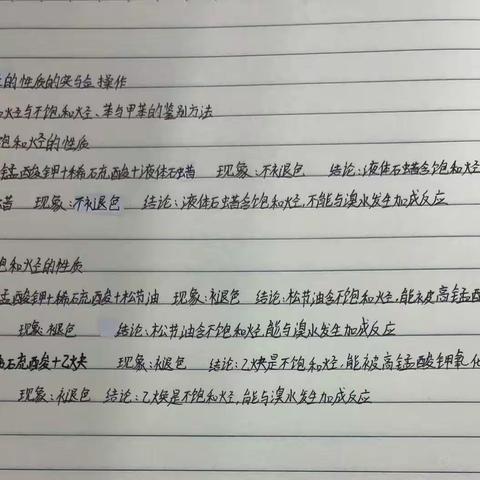 的性质的实验操作
和烃与不饱和烃、苯与甲苯的鉴别方法
饱和烃的性质
锰酸钾+稀石硫酸+液体石蜡 现象:不褪色 结论:液体石蜡含饱和烃
蜡 现象:不褪色 结论:液体石蜡含饱和烃,不能与溴水发生加成反应
饱和烃的性质
锰酸钾+稀硫酸+松节油 现象:褪色 结论:松节油含不饱和烃,能被高锰酸
现象:褪色 结论:松节油含不饱和烃,能与溴水发生加成反应
硫酸+乙炔 现象:褪色 结论:乙炔是不饱和烃,能被高锰酸钾氧化
现象:褪色 结论:乙炔是不饱和烃,能与溴水发生加成反应